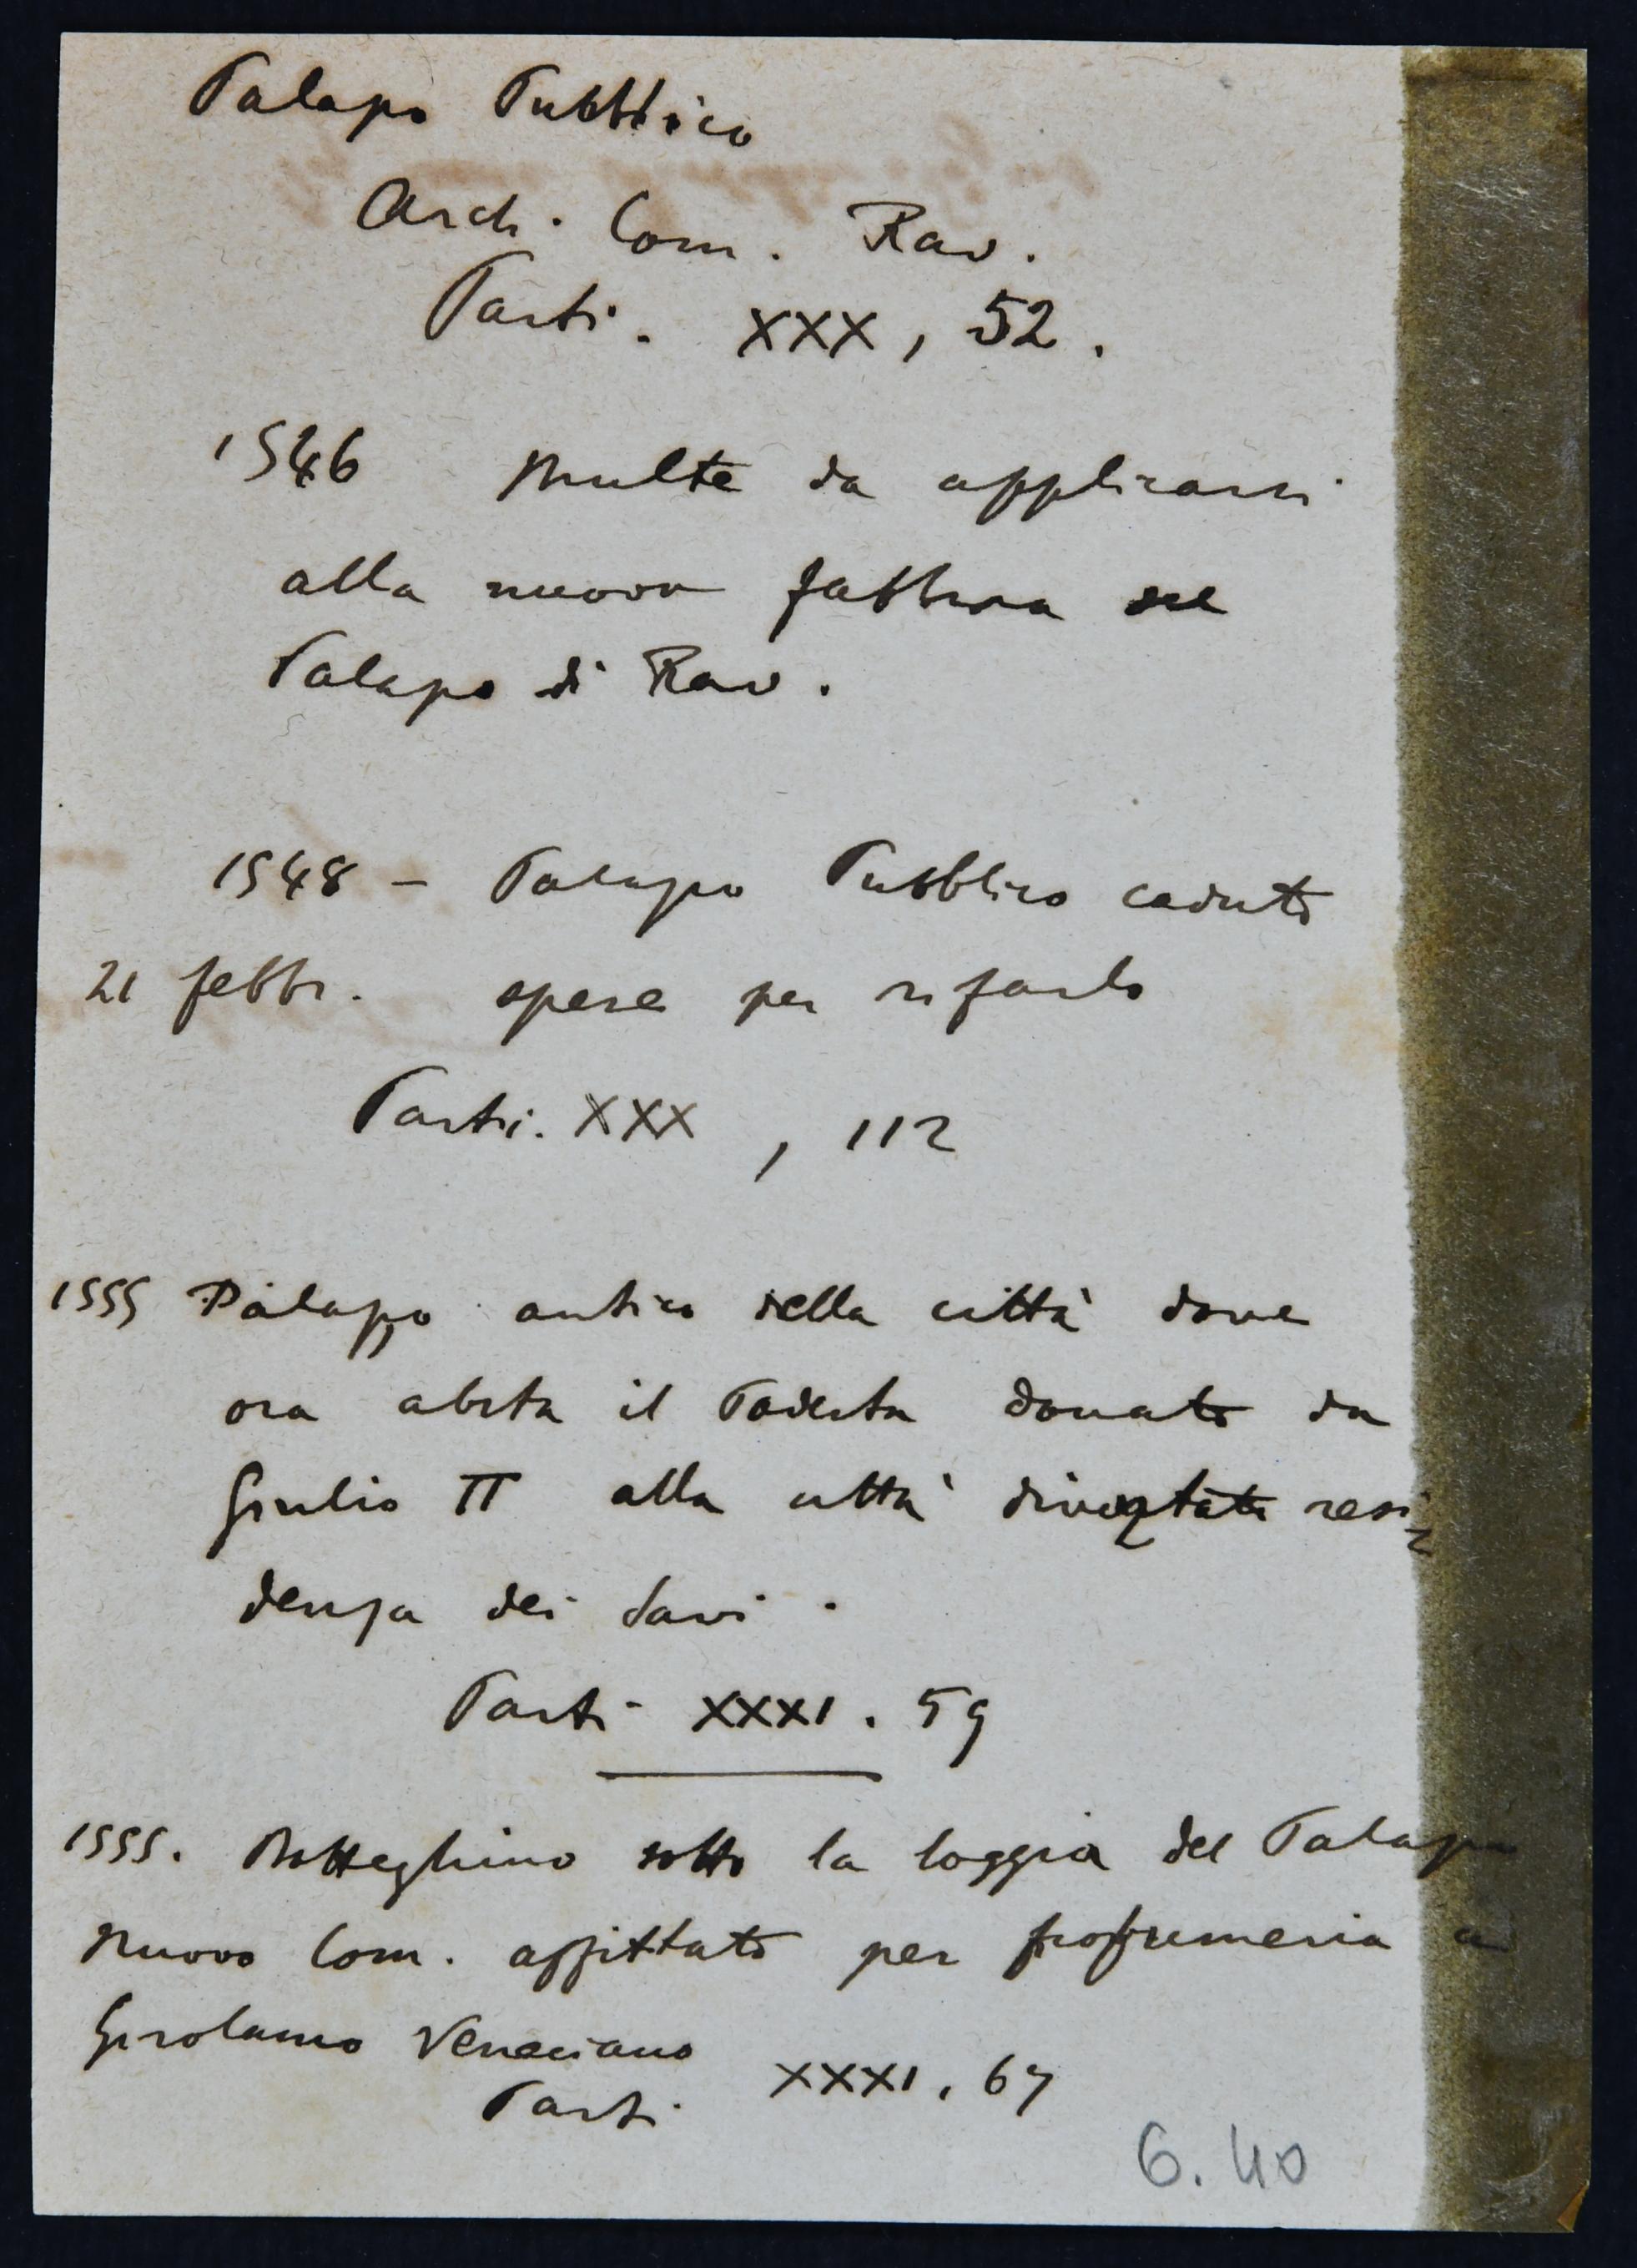 Palazzo Pubblico
Arch. Com. Rav.
Parti. XXX, 52.
1546 Multe da applicarsi
alla nuova fabbrica del
Palazzo di Rav.
1548 - Palazzo Pubblico caduto
21 febbr. opere per rifarlo
Parti. XXX, 112
1555 Palazzo antico della città dove
ora abita il Podestà donato da
Giulio II alla città diventata resi-
denza dei Savi.
Parti XXXI. 59
1555. Botteghino sotto la loggia del Palazzo
Nuovo Com. affittato per profumeria a
Girolamo Veneciano
Parti. XXXI, 67
6.40